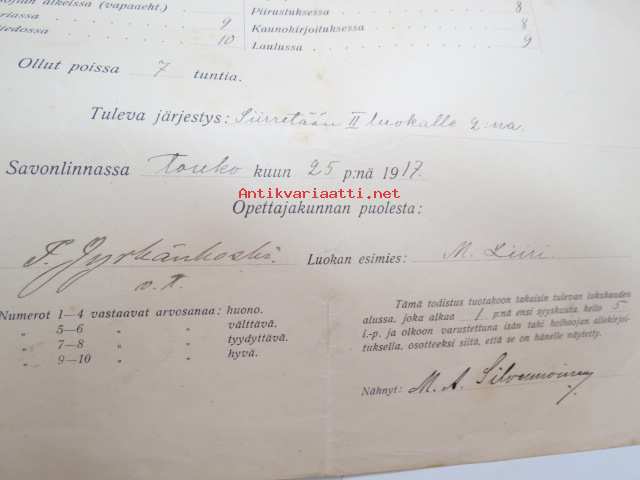 (vapaaeht.)
Piirustuksessa 8
9 Kaunokirjoituksessa 8
10 Laulussa 9
Ollut poissa 7 tuntia.
Tuleva järjestys: Siirretään II luokalle 2:na.
Savonlinnassa Touko kuun 25 p:nä 1917.
Antikvariaatti.net
Opettajakunnan puolesta:
Luokan esimies: M. Liiri.
v. t.
Numerot 1—4 vastaavat arvosanaa: huono.
„ 5—6 „ „ välttävä.
„ 7—8 „ „ tyydyttävä.
„ 9—10 „ „ hyvä.
Tämä todistus tuotakoon takaisin tulevan lukukauden
alussa, joka alkaa 1 p:nä ensi syyskuuta kello 5
i.-p. ja olkoon varustettuna isän taki holhoojan allekirjoi-
tuksella, osotteeksi siitä, että se on hänelle näytetty.
Nähnyt: M. A. Silvennoinen